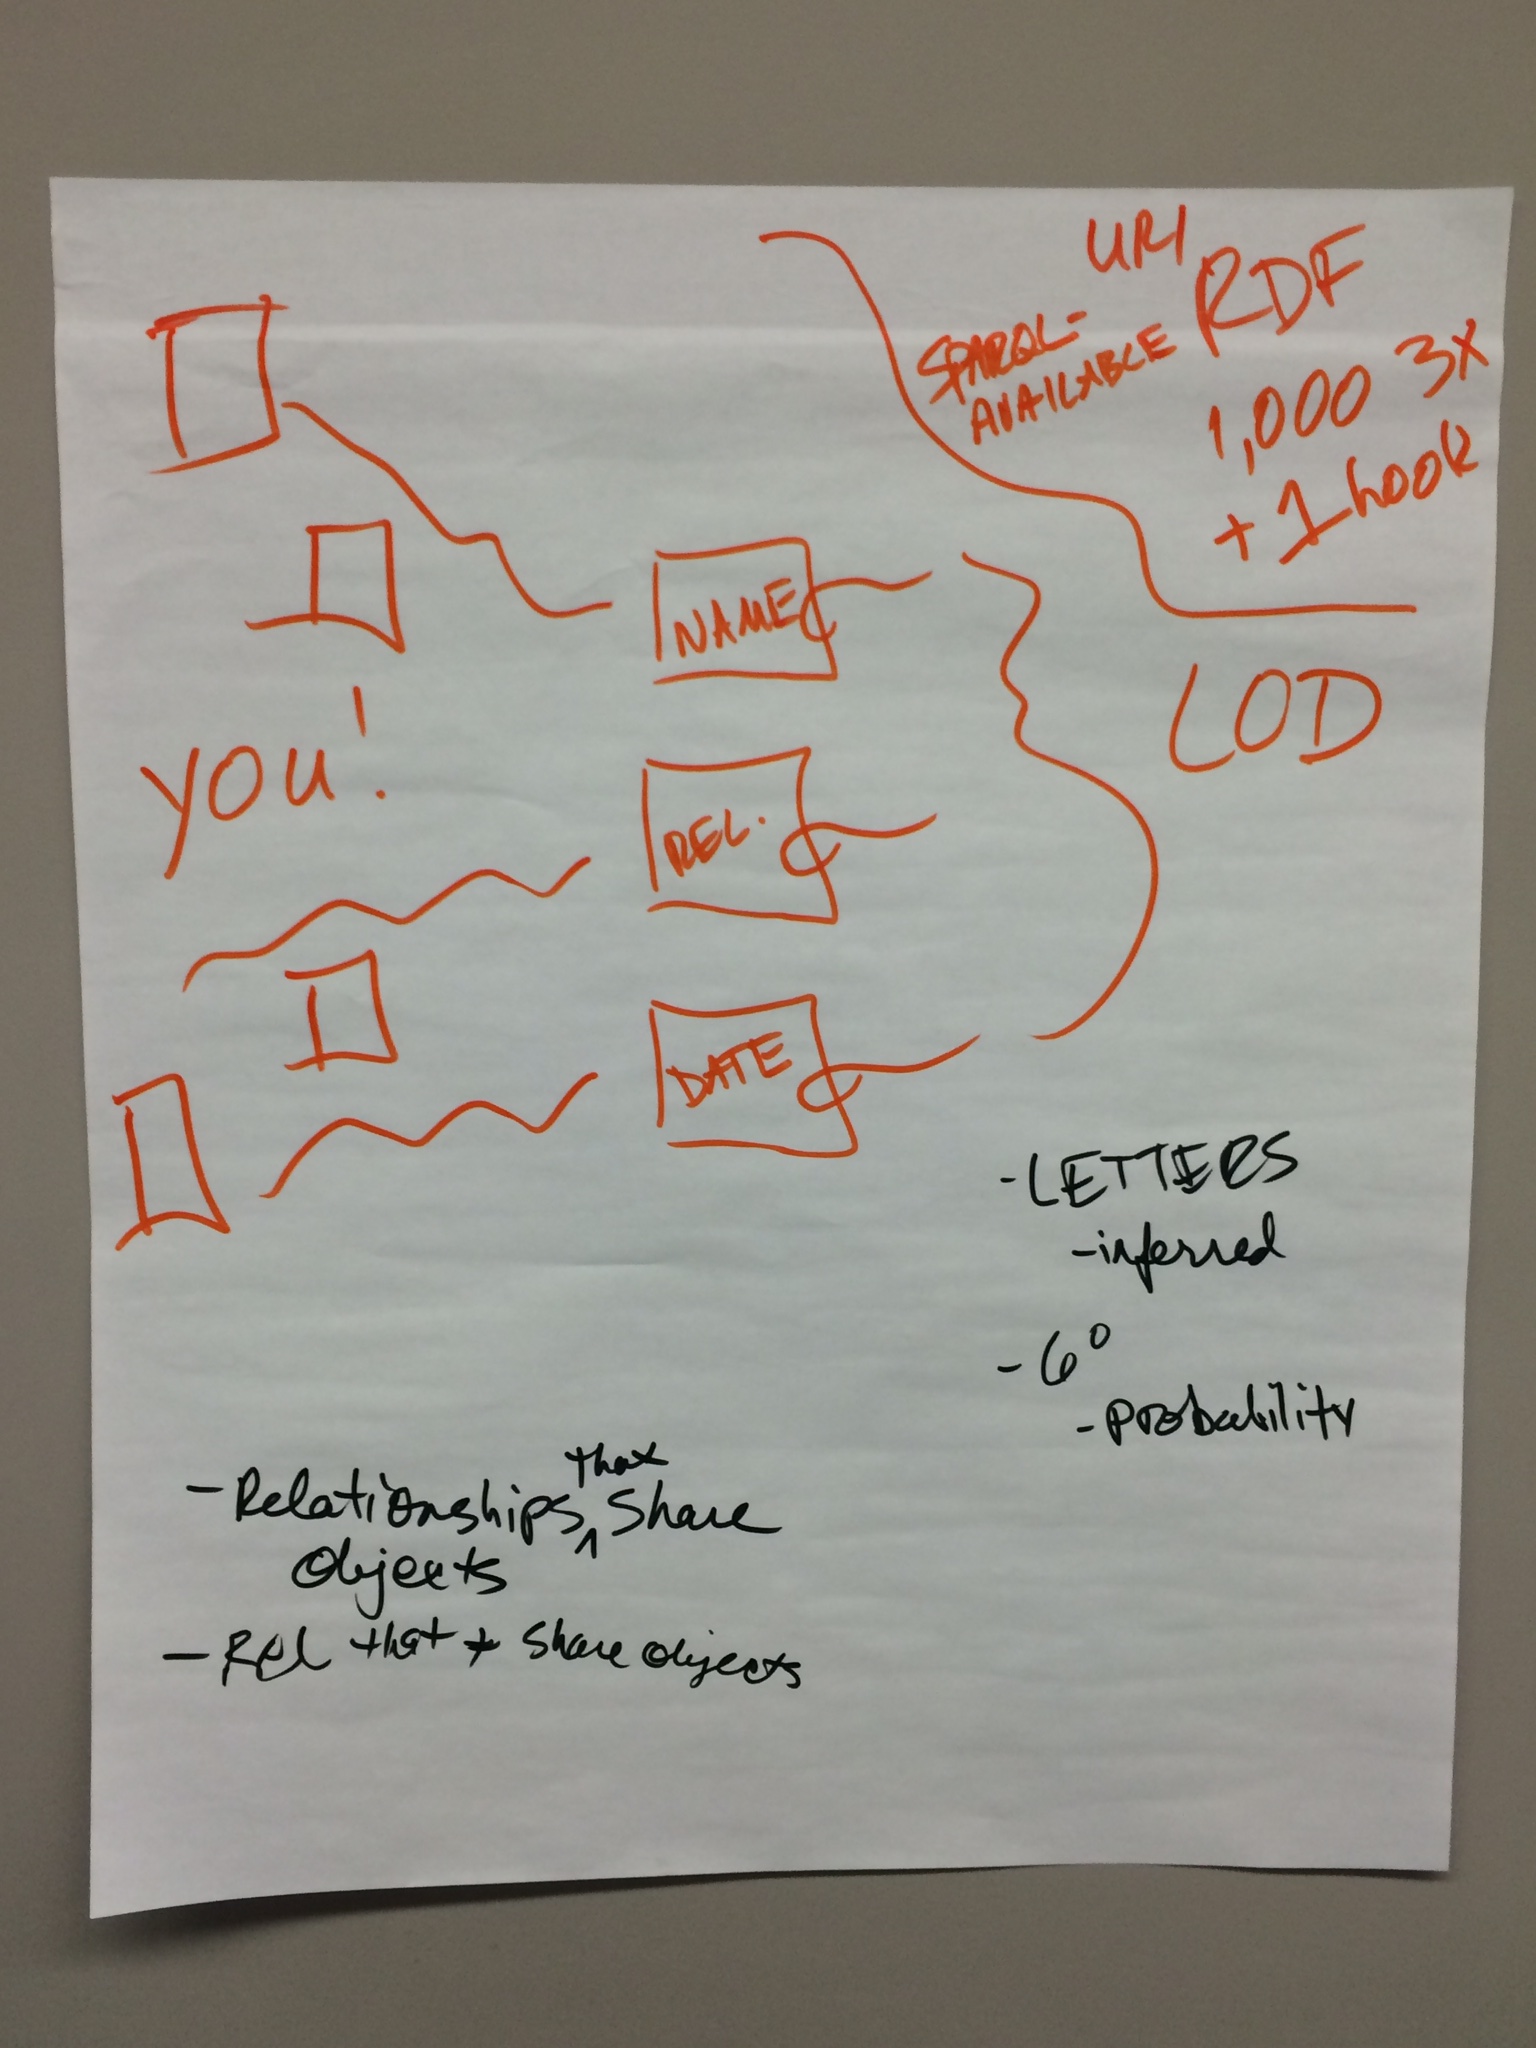 URI
SPARQL-
AVAILABLE
RDF
1,000 3x
+ 1 hook
LOD
NAME
YOU!
REL.
DATE
- LETTERS
- inferred
- 6°
- probability
- Relationships that share
objects
- Rel that share objects